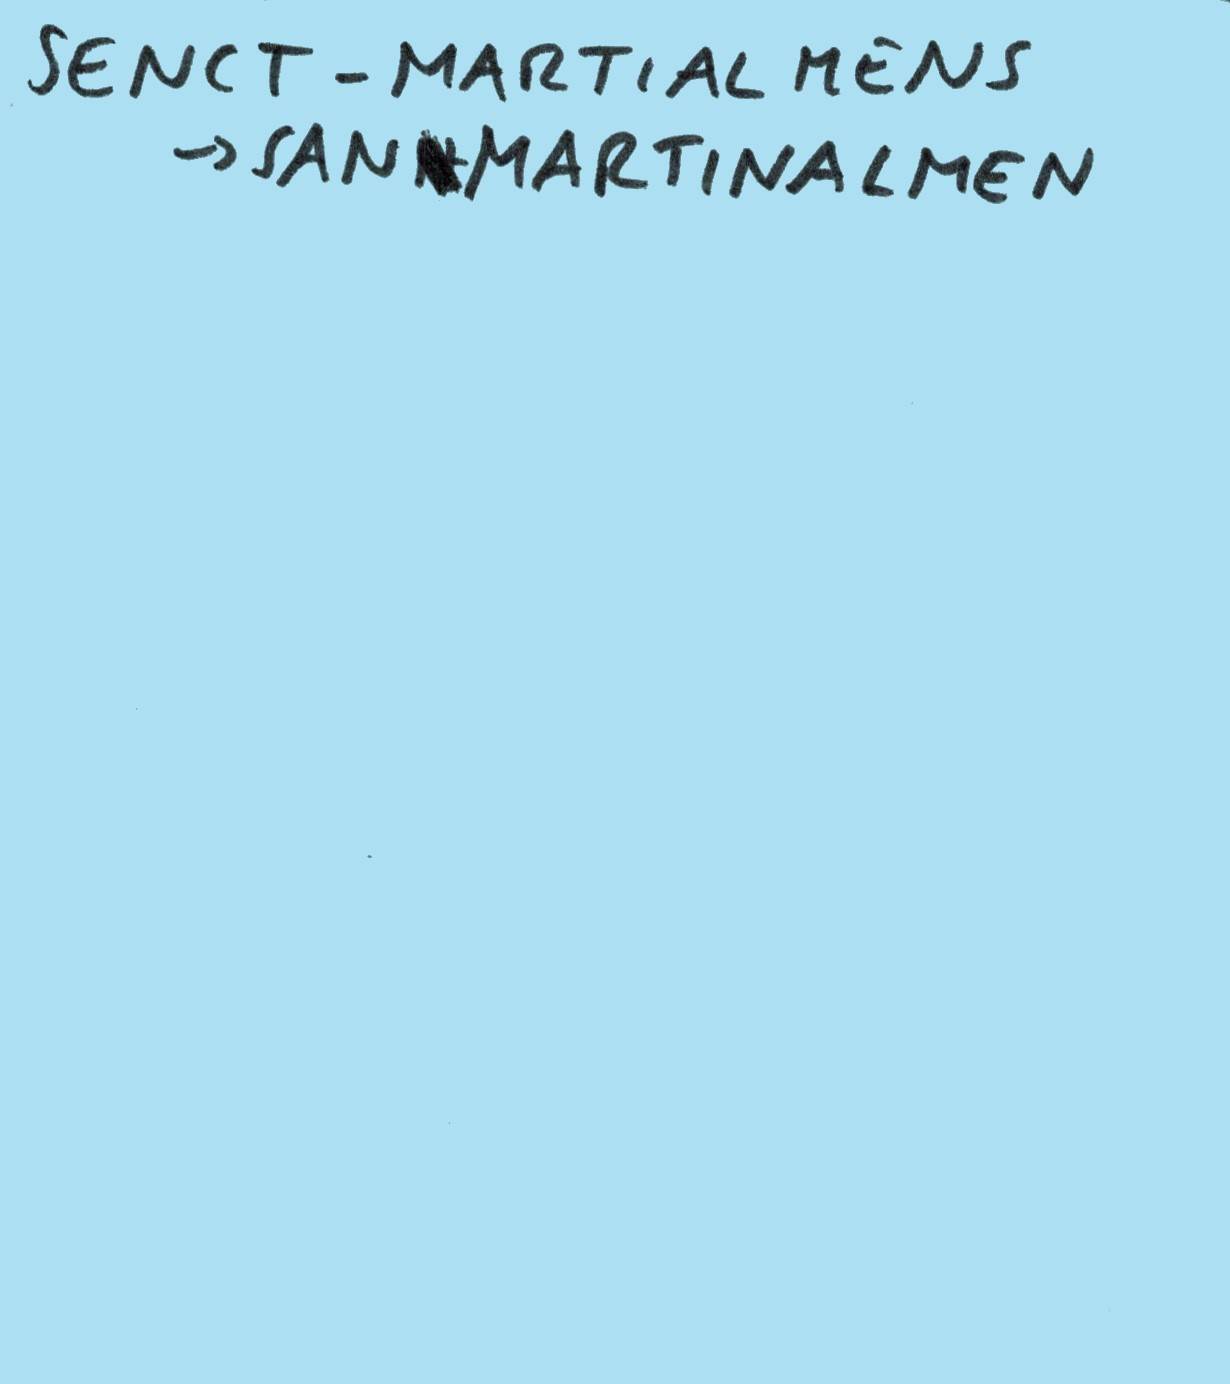 SENCT-MARTIALMĒNS
→SANMARTINALMEN